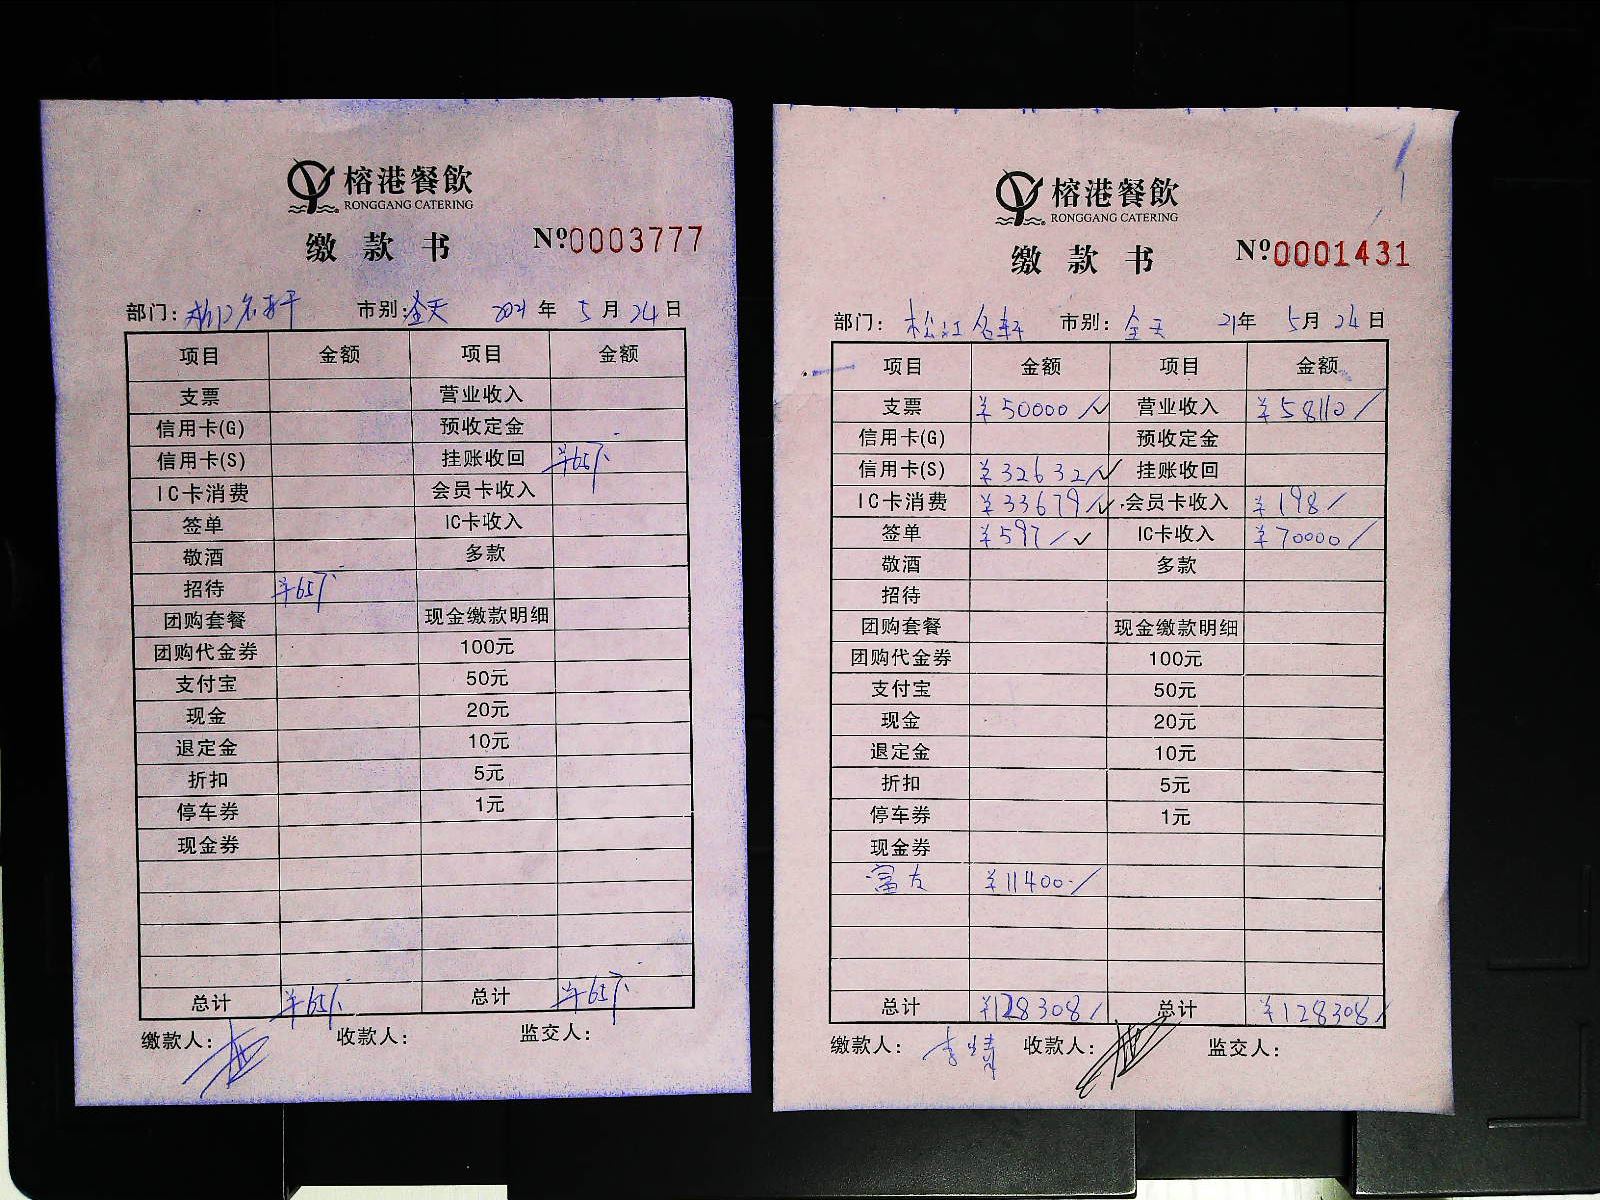 榕港餐飲
RONGGANG CATERING
缴款书 Nº0003777
部门: 市别:全天 2021年5月24日
项目 金额 项目 金额
支票 营业收入
信用卡(G) 预收定金
信用卡(S) 挂账收回
IC卡消费 会员卡收入
签单 IC卡收入
敬酒 多款
招待
团购套餐 现金缴款明细
团购代金券 100元
支付宝 50元
现金 20元
退定金 10元
折扣 5元
停车券 1元
现金券
总计 总计
缴款人: 收款人: 监交人:
榕港餐飲
RONGGANG CATERING
缴款书 Nº0001431
部门: 松江名轩 市别: 全天 21年5月24日
项目 金额 项目 金额
支票 ¥50000 营业收入 ¥58110
信用卡(G) 预收定金
信用卡(S) ¥32632 挂账收回
IC卡消费 ¥33679 会员卡收入 ¥198
签单 ¥597 IC卡收入 ¥70000
敬酒 多款
招待
团购套餐 现金缴款明细
团购代金券 100元
支付宝 50元
现金 20元
退定金 10元
折扣 5元
停车券 1元
现金券
富友 ¥11400
总计 ¥128308 总计 ¥128308
缴款人: 李婧 收款人: 监交人: